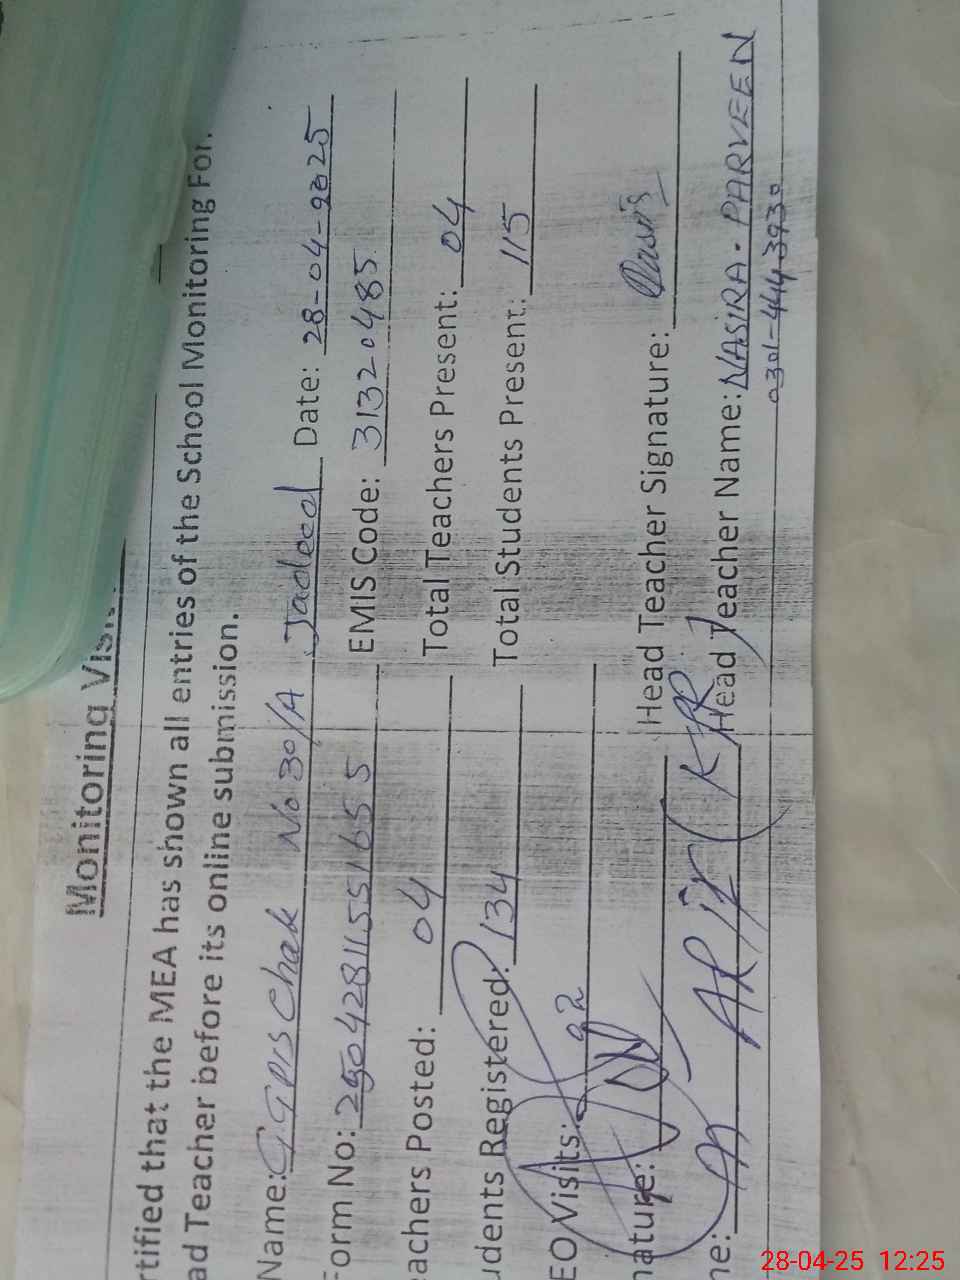 Monitoring Vis
rtified that the MEA has shown all entries of the School Monitoring For
ad Teacher before its online submission.
Name: GGPS Chak No 30/A Jadeed Date: 28-04-2025
Form No: 25042811551655 EMIS Code: 31320485
eachers Posted: 04 Total Teachers Present: 04
udents Registered: 134 Total Students Present: 115
EO Visits: 02
nature: Head Teacher Signature:
me: Head Teacher Name: NASIRA. PARVEEN
0301-4443930
28-04-25 12:25